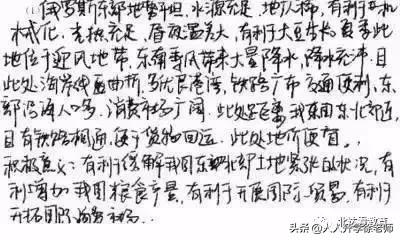 俄罗斯东部地势平坦,水源充足,地广人稀,有利于农机
械化,光热充足,昼夜温差大,有利于大豆生长,夏季此
地位于迎风地带,东南季风带来大量降水,降水充沛,且
此处海岸线曲折,多优良港湾,铁路广布,交通便利,东
部沿海人口多,消费市场广阔。此处距离我东北部近,
且有铁路相通,便于货物回运。此处地价便宜。
积极意义:有利于缓解我国东北部土地紧张的状况,有
利增加我国粮食产量,有利于开展国际贸易,有利于
开拓国际海外市场。
北艺高教育
头条@人人升学徐老师